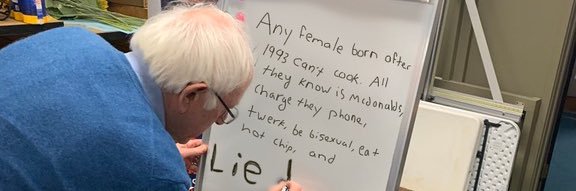 Any female born after
1993 Can't cook. All
they know is mcdonalds,
charge they phone,
twerk, be bisexual, eat
hot chip, and
Lie !